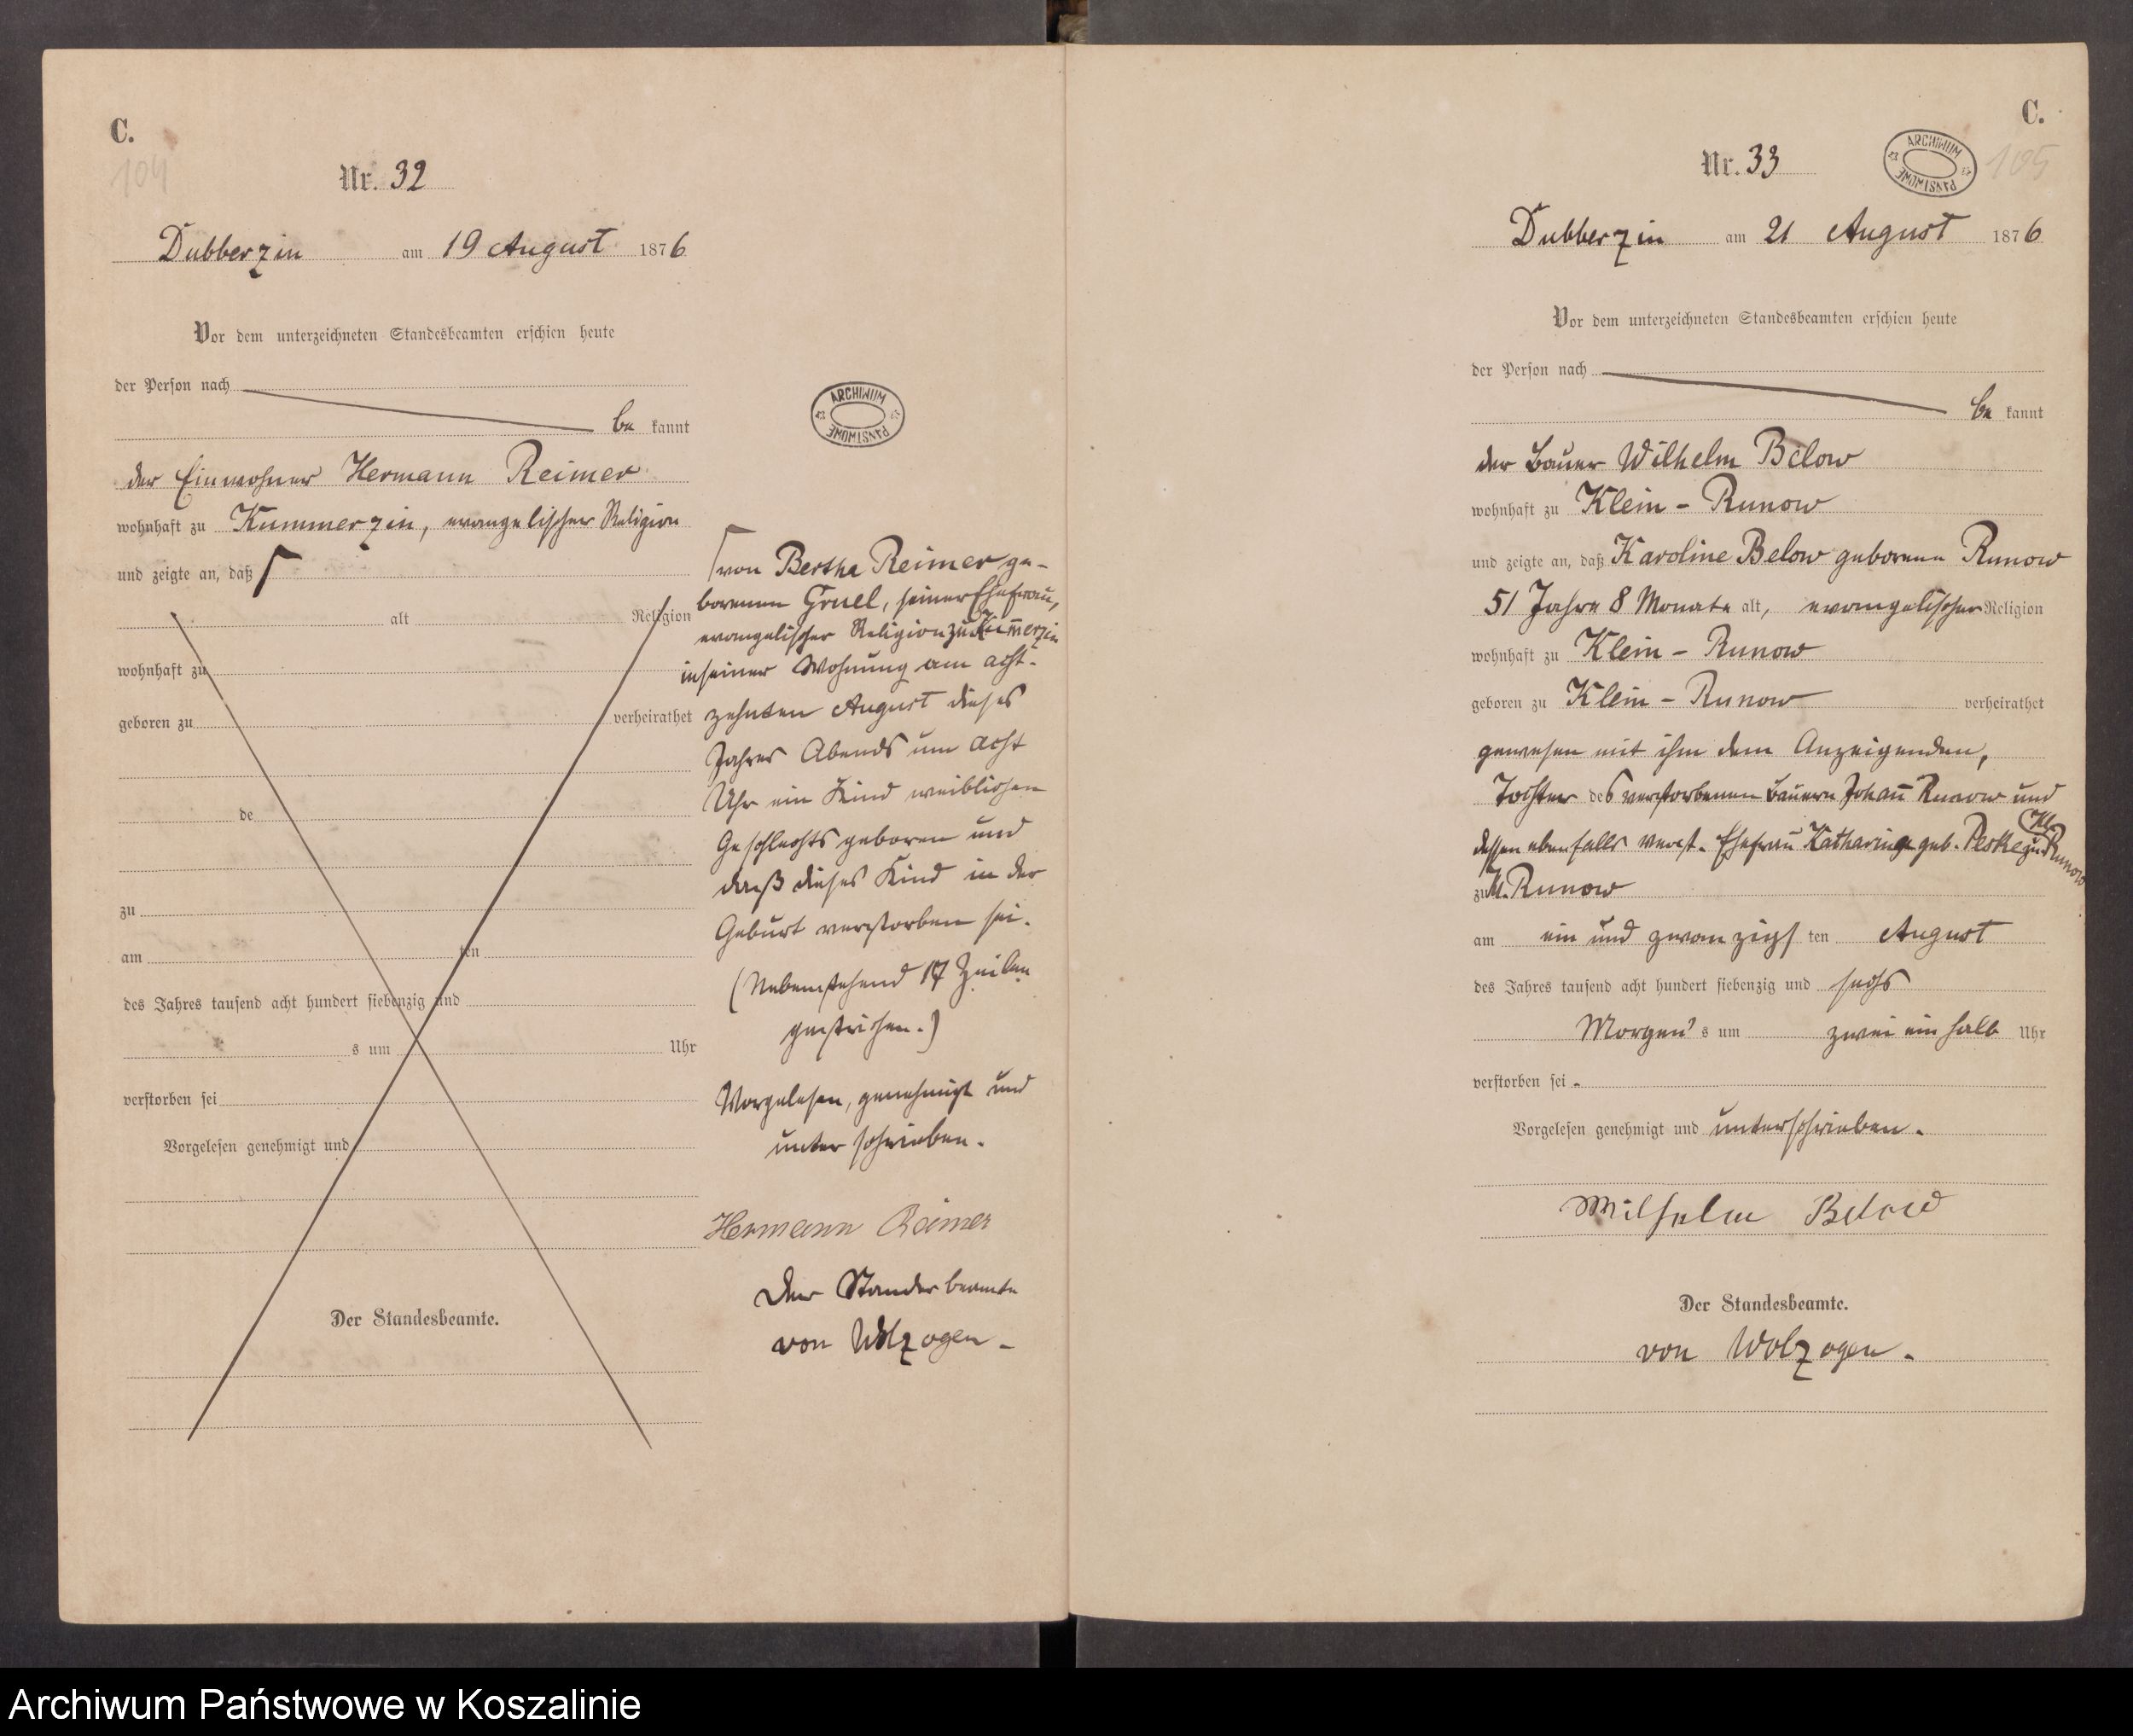 C.
104
Nr. 32
Dubberzin am 19 August 1876
Vor dem unterzeichneten Standesbeamten erschien heute
der Person nach
be kannt
der Einwohner Hermann Reimer
wohnhaft zu Kummerzin, evangelischer Religion
und zeigte an, daß
alt Religion
wohnhaft zu
geboren zu verheirathet
de
zu
am ten
des Jahres tausend acht hundert siebenzig und
s um Uhr
verstorben sei
Vorgelesen genehmigt und
Der Standesbeamte.
ARCHIWUM PAŃSTWOWE
von Bertha Reimer ge-
borenen Gruel, seiner Ehefrau,
evangelischer Religion zu Kum̄erzin
in seiner Wohnung am acht-
zehnten August dieses
Jahres Abends um acht
Uhr ein Kind weiblichen
Geschlechts geboren und
daß dieses Kind in der
Geburt verstorben sei.
(Nebenstehend 17 Zeilen
gestrichen.)
Vorgelesen, genehmigt und
unterschrieben.
Hermann Reimer
Der Standesbeamte
von Wolzogen.
C.
105
ARCHIWUM PAŃSTWOWE
Nr. 33
Dubberzin am 21 August 1876
Vor dem unterzeichneten Standesbeamten erschien heute
der Person nach
be kannt
der Bauer Wilhelm Below
wohnhaft zu Klein-Runow
und zeigte an, daß Karoline Below geborene Runow
51 Jahre 8 Monate alt, evangelischer Religion
wohnhaft zu Klein-Runow
geboren zu Klein-Runow verheirathet
gewesen mit ihm dem Anzeigenden,
Tochter des verstorbenen Bauern Johan̄ Runow und
dessen ebenfalls verst. Ehefrau Katharine geb. Peske zu Kl. Runow
zu Kl. Runow
am ein und zwanzigs ten August
des Jahres tausend acht hundert siebenzig und sechs
Morgen's um zwei ein halb Uhr
verstorben sei.
Vorgelesen genehmigt und unterschrieben.
Wilhelm Below
Der Standesbeamte.
von Wolzogen.
Archiwum Państwowe w Koszalinie